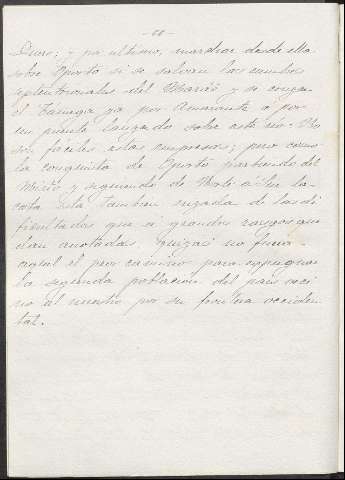 Duero; y por ultimo, marchar desde ella
sobre Oporto si se salvan las cumbres
septentrionales del Marão y se cruza
el Tamega ya por Amarante ó por
un puente lanzado sobre este rio. No
son faciles estas empresas; pero como
la conquista de Oporto partiendo del
Miño y siguiendo de Norte á Sur la
costa está tambien erizada de las di
ficultades que á grandes rasgos que
dan anotadas, quizas no fuera
aquel el peor camino para expugnar
la segunda poblacion del pais veci
no al nuestro por su frontera occiden
tal.